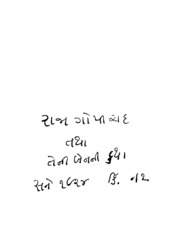 રાજા ગોપીચંદ
તથા
તેની બેનની કથા
સને ૧૯૨૪ કિં. ન૦૨